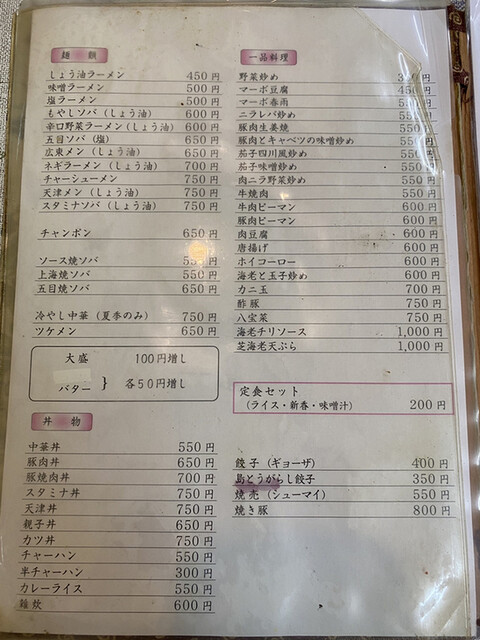 麺類
しょう油ラーメン 450円
味噌ラーメン 500円
塩ラーメン 500円
もやしソバ（しょう油） 600円
辛口野菜ラーメン（しょう油） 600円
五目ソバ（塩） 650円
広東メン（しょう油） 650円
ネギラーメン（しょう油） 700円
チャーシューメン 750円
天津メン（しょう油） 750円
スタミナソバ（しょう油） 750円
チャンポン 650円
ソース焼ソバ 550円
上海焼ソバ 550円
五目焼ソバ 650円
冷やし中華（夏季のみ） 750円
ツケメン 650円
大盛 100円増し
バター } 各50円増し
丼物
中華丼 550円
豚肉丼 650円
豚焼肉丼 700円
スタミナ丼 750円
天津丼 750円
親子丼 650円
カツ丼 750円
チャーハン 550円
半チャーハン 300円
カレーライス 550円
麺炊 600円
一品料理
野菜炒め 円
マーボ豆腐 450円
マーボ春雨 550円
ニラレバ炒め 550円
豚肉生姜焼 550円
豚肉とキャベツの味噌炒め 550円
茄子四川風炒め 550円
茄子味噌炒め 550円
肉ニラ野菜炒め 550円
牛焼肉 550円
牛肉ピーマン 600円
豚肉ピーマン 600円
肉豆腐 600円
唐揚げ 600円
ホイコーロー 600円
海老と玉子炒め 600円
カニ玉 700円
酢豚 750円
八宝菜 750円
海老チリソース 1,000円
芝海老天ぷら 1,000円
定食セット
（ライス・新香・味噌汁） 200円
餃子（ギョーザ） 400円
島とうがらし餃子 350円
焼売（シューマイ） 550円
焼き豚 800円